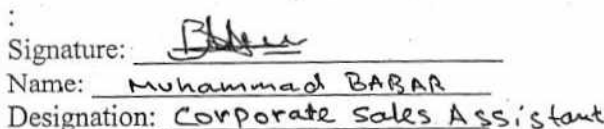 :
Signature:
Name: Muhammad BABAR
Designation: Corporate Sales Assistant